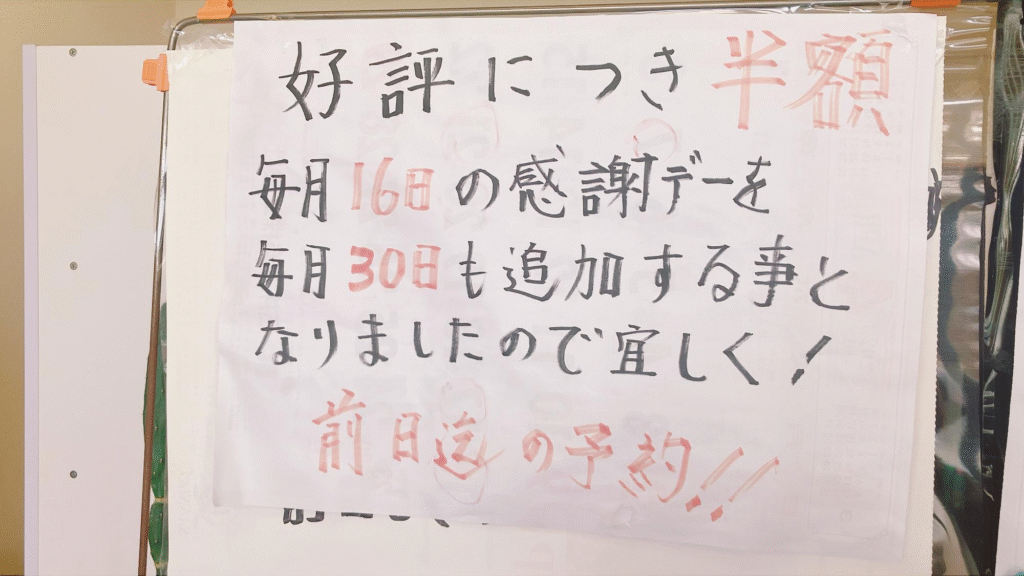 好評につき半額
毎月16日の感謝デーを
毎月30日も追加する事と
なりましたので宜しく!
前日迄の予約!!